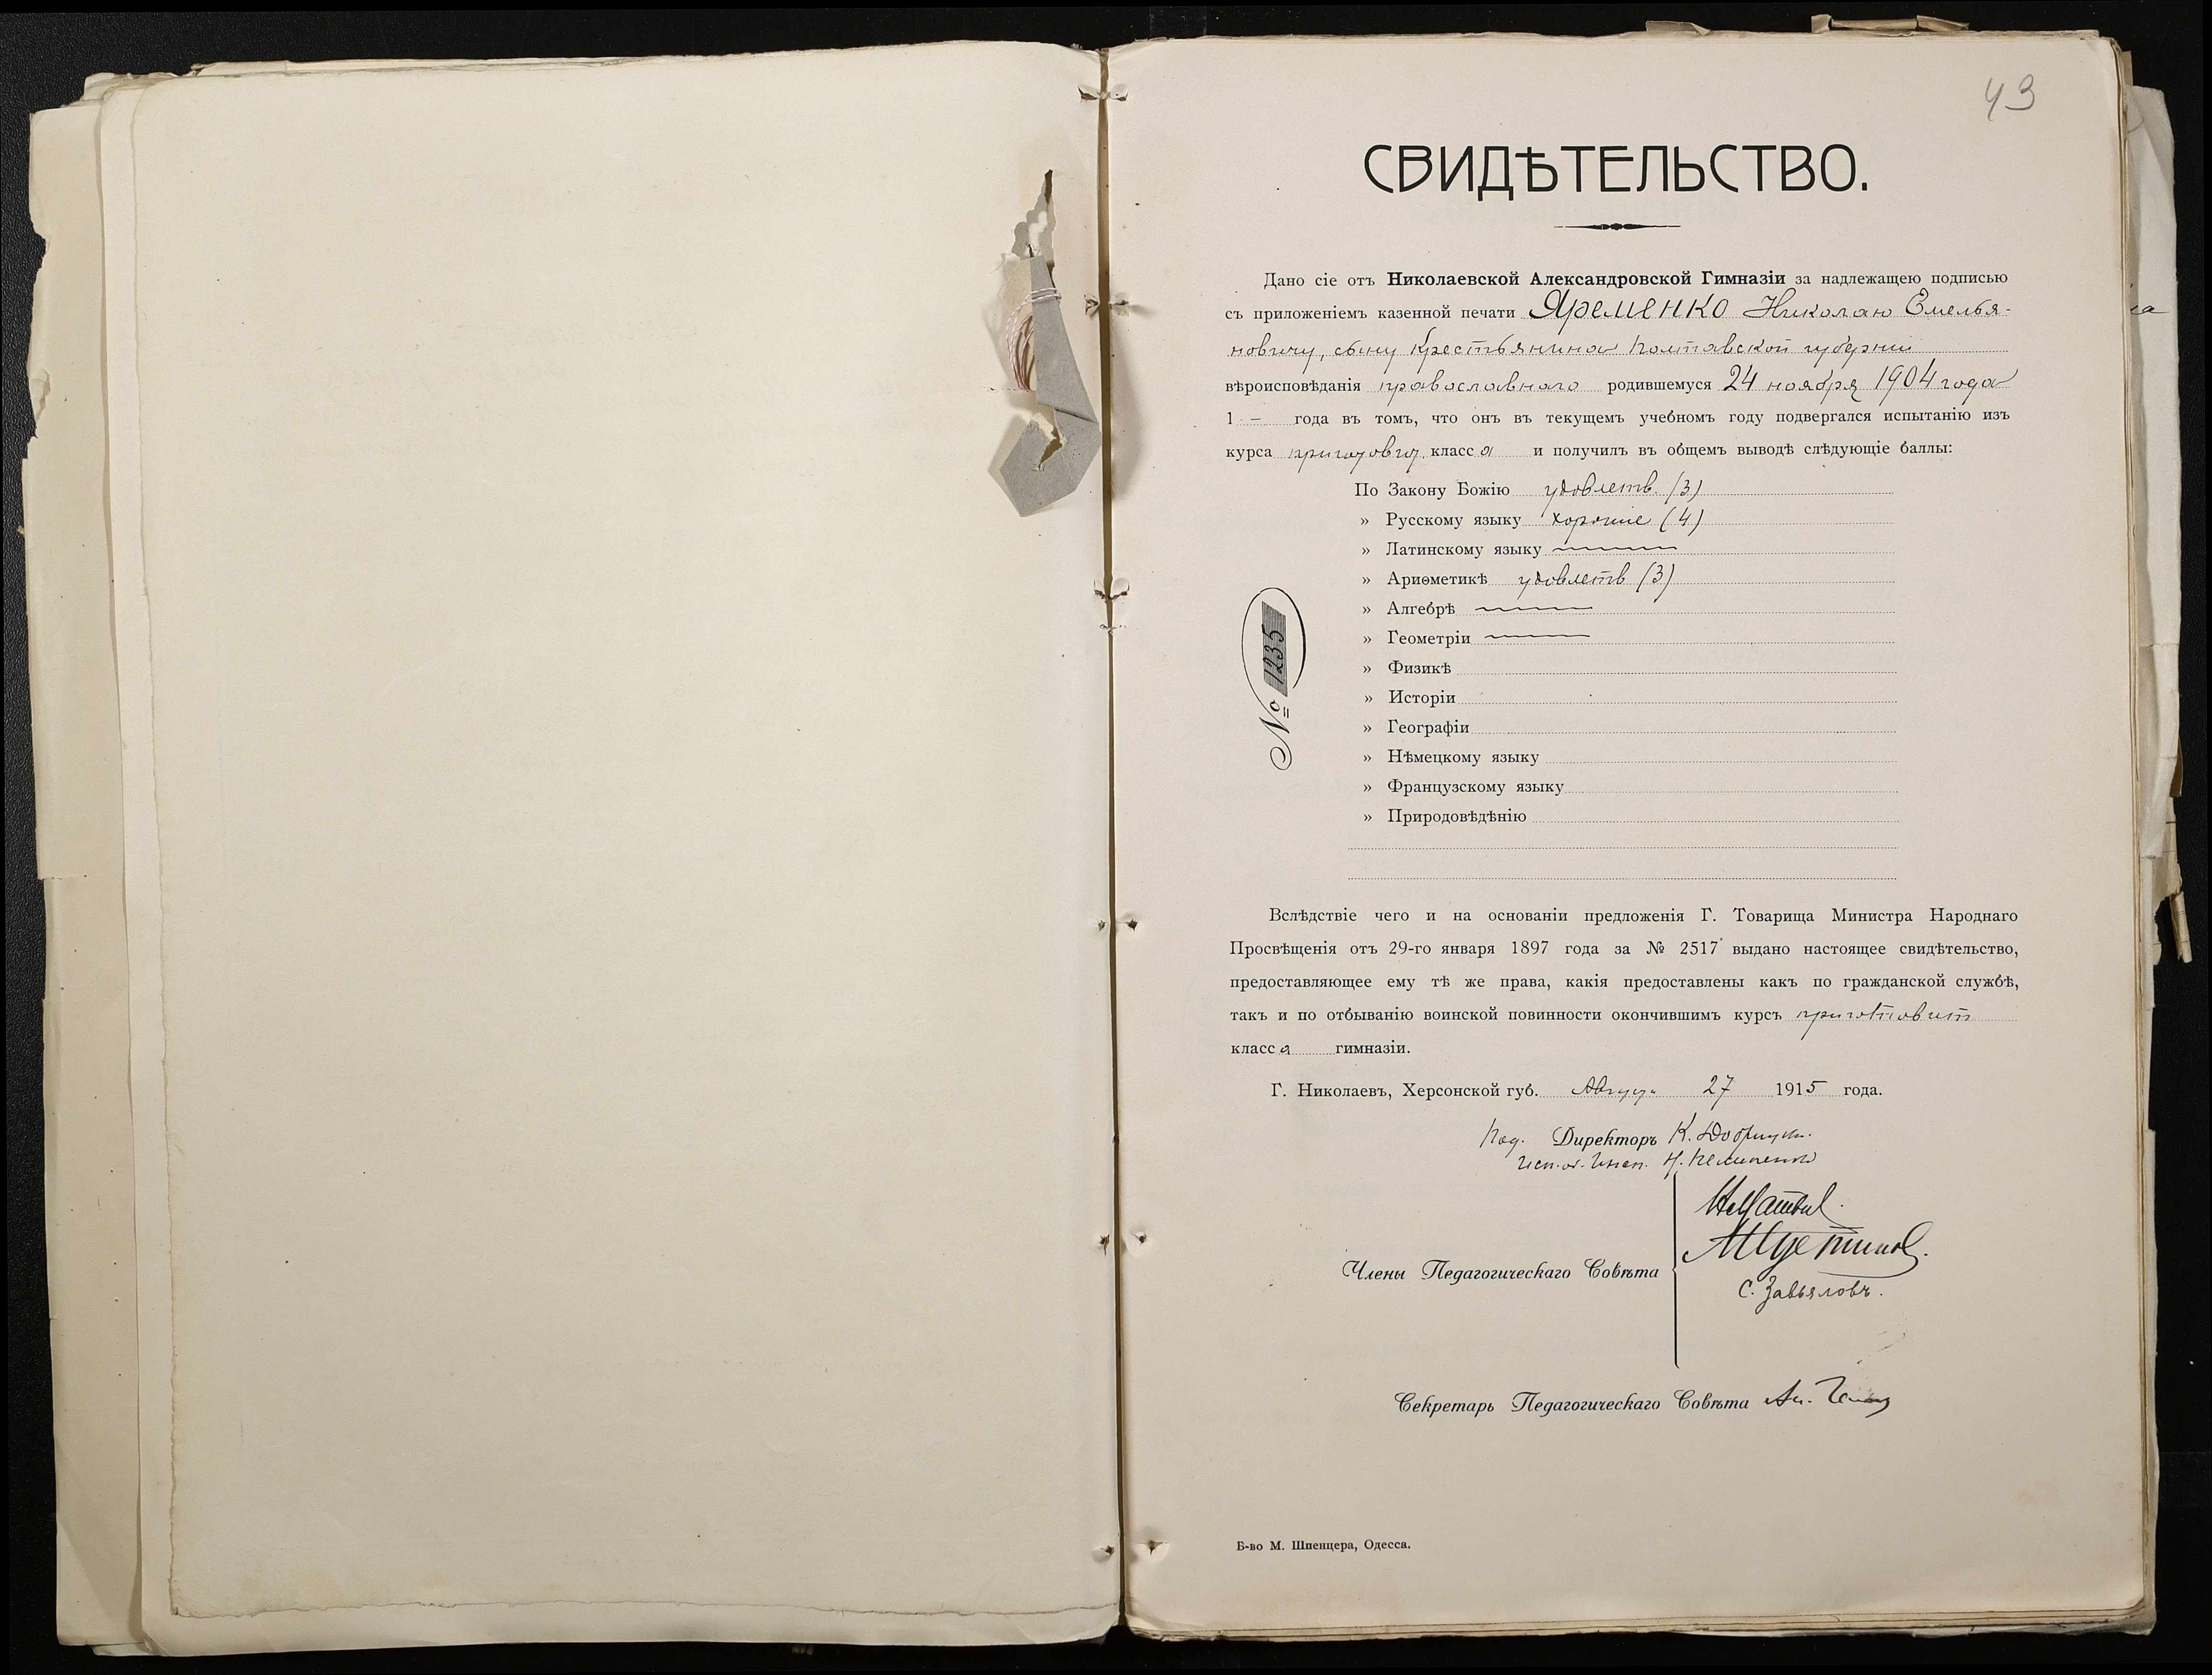 43
СВИДѢТЕЛЬСТВО.
Дано сіе отъ Николаевской Александровской Гимназіи за надлежащею подписью
съ приложеніемъ казенной печати Яременко Николаю Емелья-
новичу, сыну крестьянина Полтавской губерніи
вѣроисповѣданія православнаго родившемуся 24 ноября 1904 года
1 – года въ томъ, что онъ въ текущемъ учебномъ году подвергался испытанію изъ
курса приготовит. класса и получилъ въ общемъ выводѣ слѣдующіе баллы:
По Закону Божію удовлетв. (3)
» Русскому языку хорошіе (4)
» Латинскому языку
» Ариѳметикѣ удовлетв (3)
» Алгебрѣ
» Геометріи
» Физикѣ
» Исторіи
» Географіи
» Нѣмецкому языку
» Французскому языку
» Природовѣдѣнію
№ 1235
Вслѣдствіе чего и на основаніи предложенія Г. Товарища Министра Народнаго
Просвѣщенія отъ 29-го января 1897 года за № 2517 выдано настоящее свидѣтельство,
предоставляющее ему тѣ же права, какія предоставлены какъ по гражданской службѣ,
такъ и по отбыванію воинской повинности окончившимъ курсъ приготовит
класса гимназіи.
Г. Николаевъ, Херсонской губ. Авгус. 27 1915 года.
Под. Директоръ К.
Исп. об. Инсп. Н.
Члены Педагогическаго Совѣта
С. Завьяловъ.
Секретарь Педагогическаго Совѣта
Б-во М. Шпенцера, Одесса.